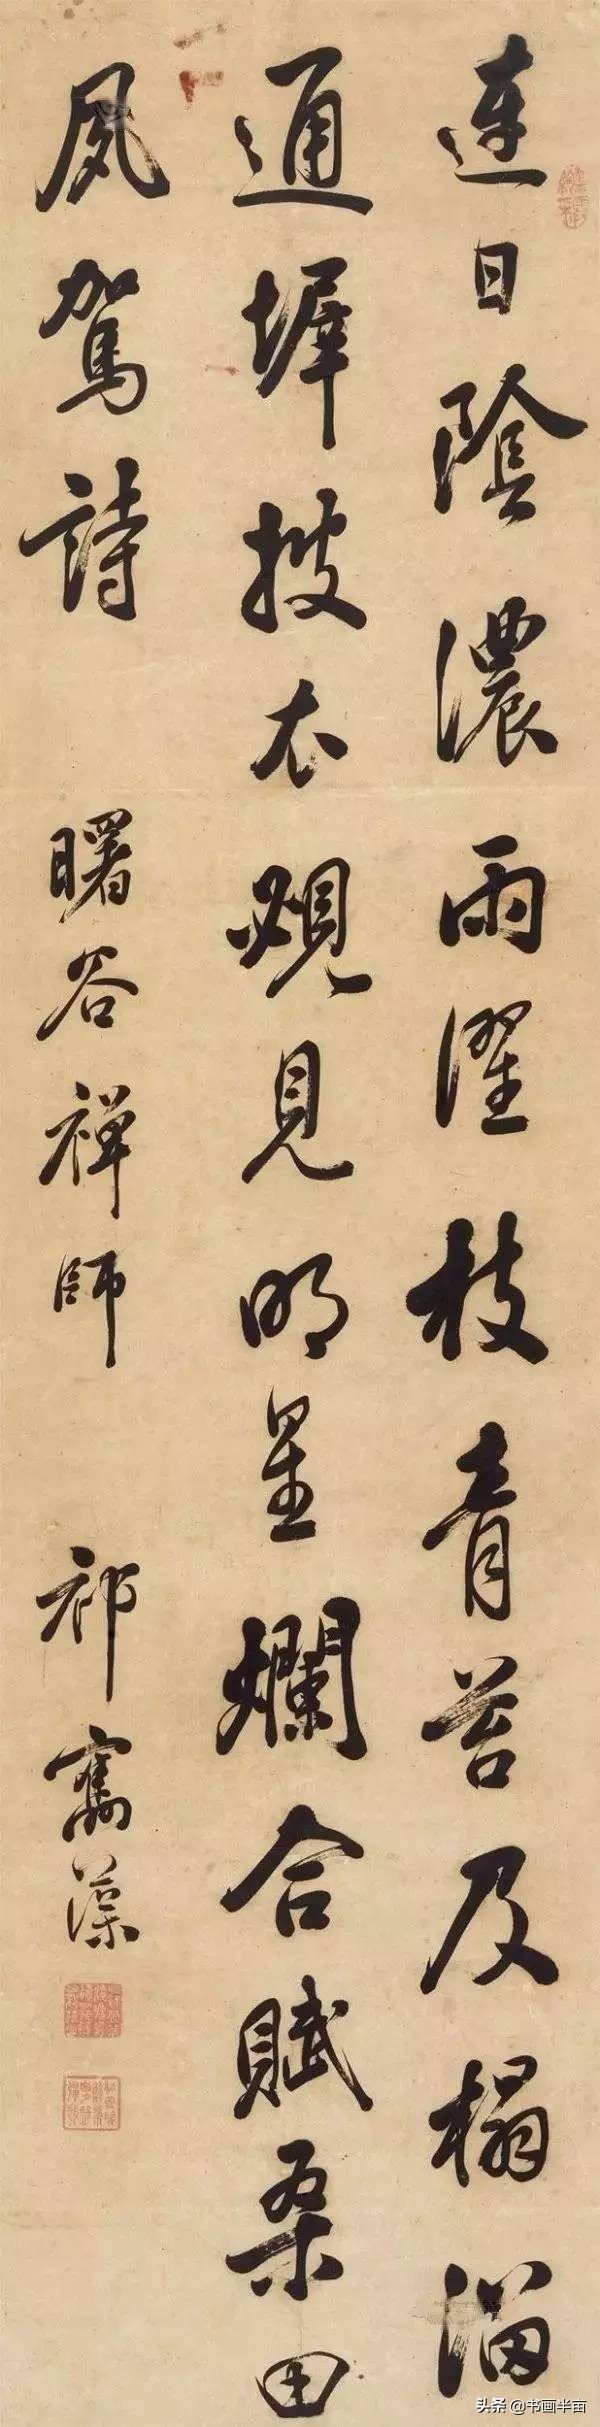 連日陰濃雨濯枝青苔及榻溜
通墀披衣覗見明星爛合賦桑田
夙駕詩
曙谷禅師
祁寯藻
头条 @书画半亩